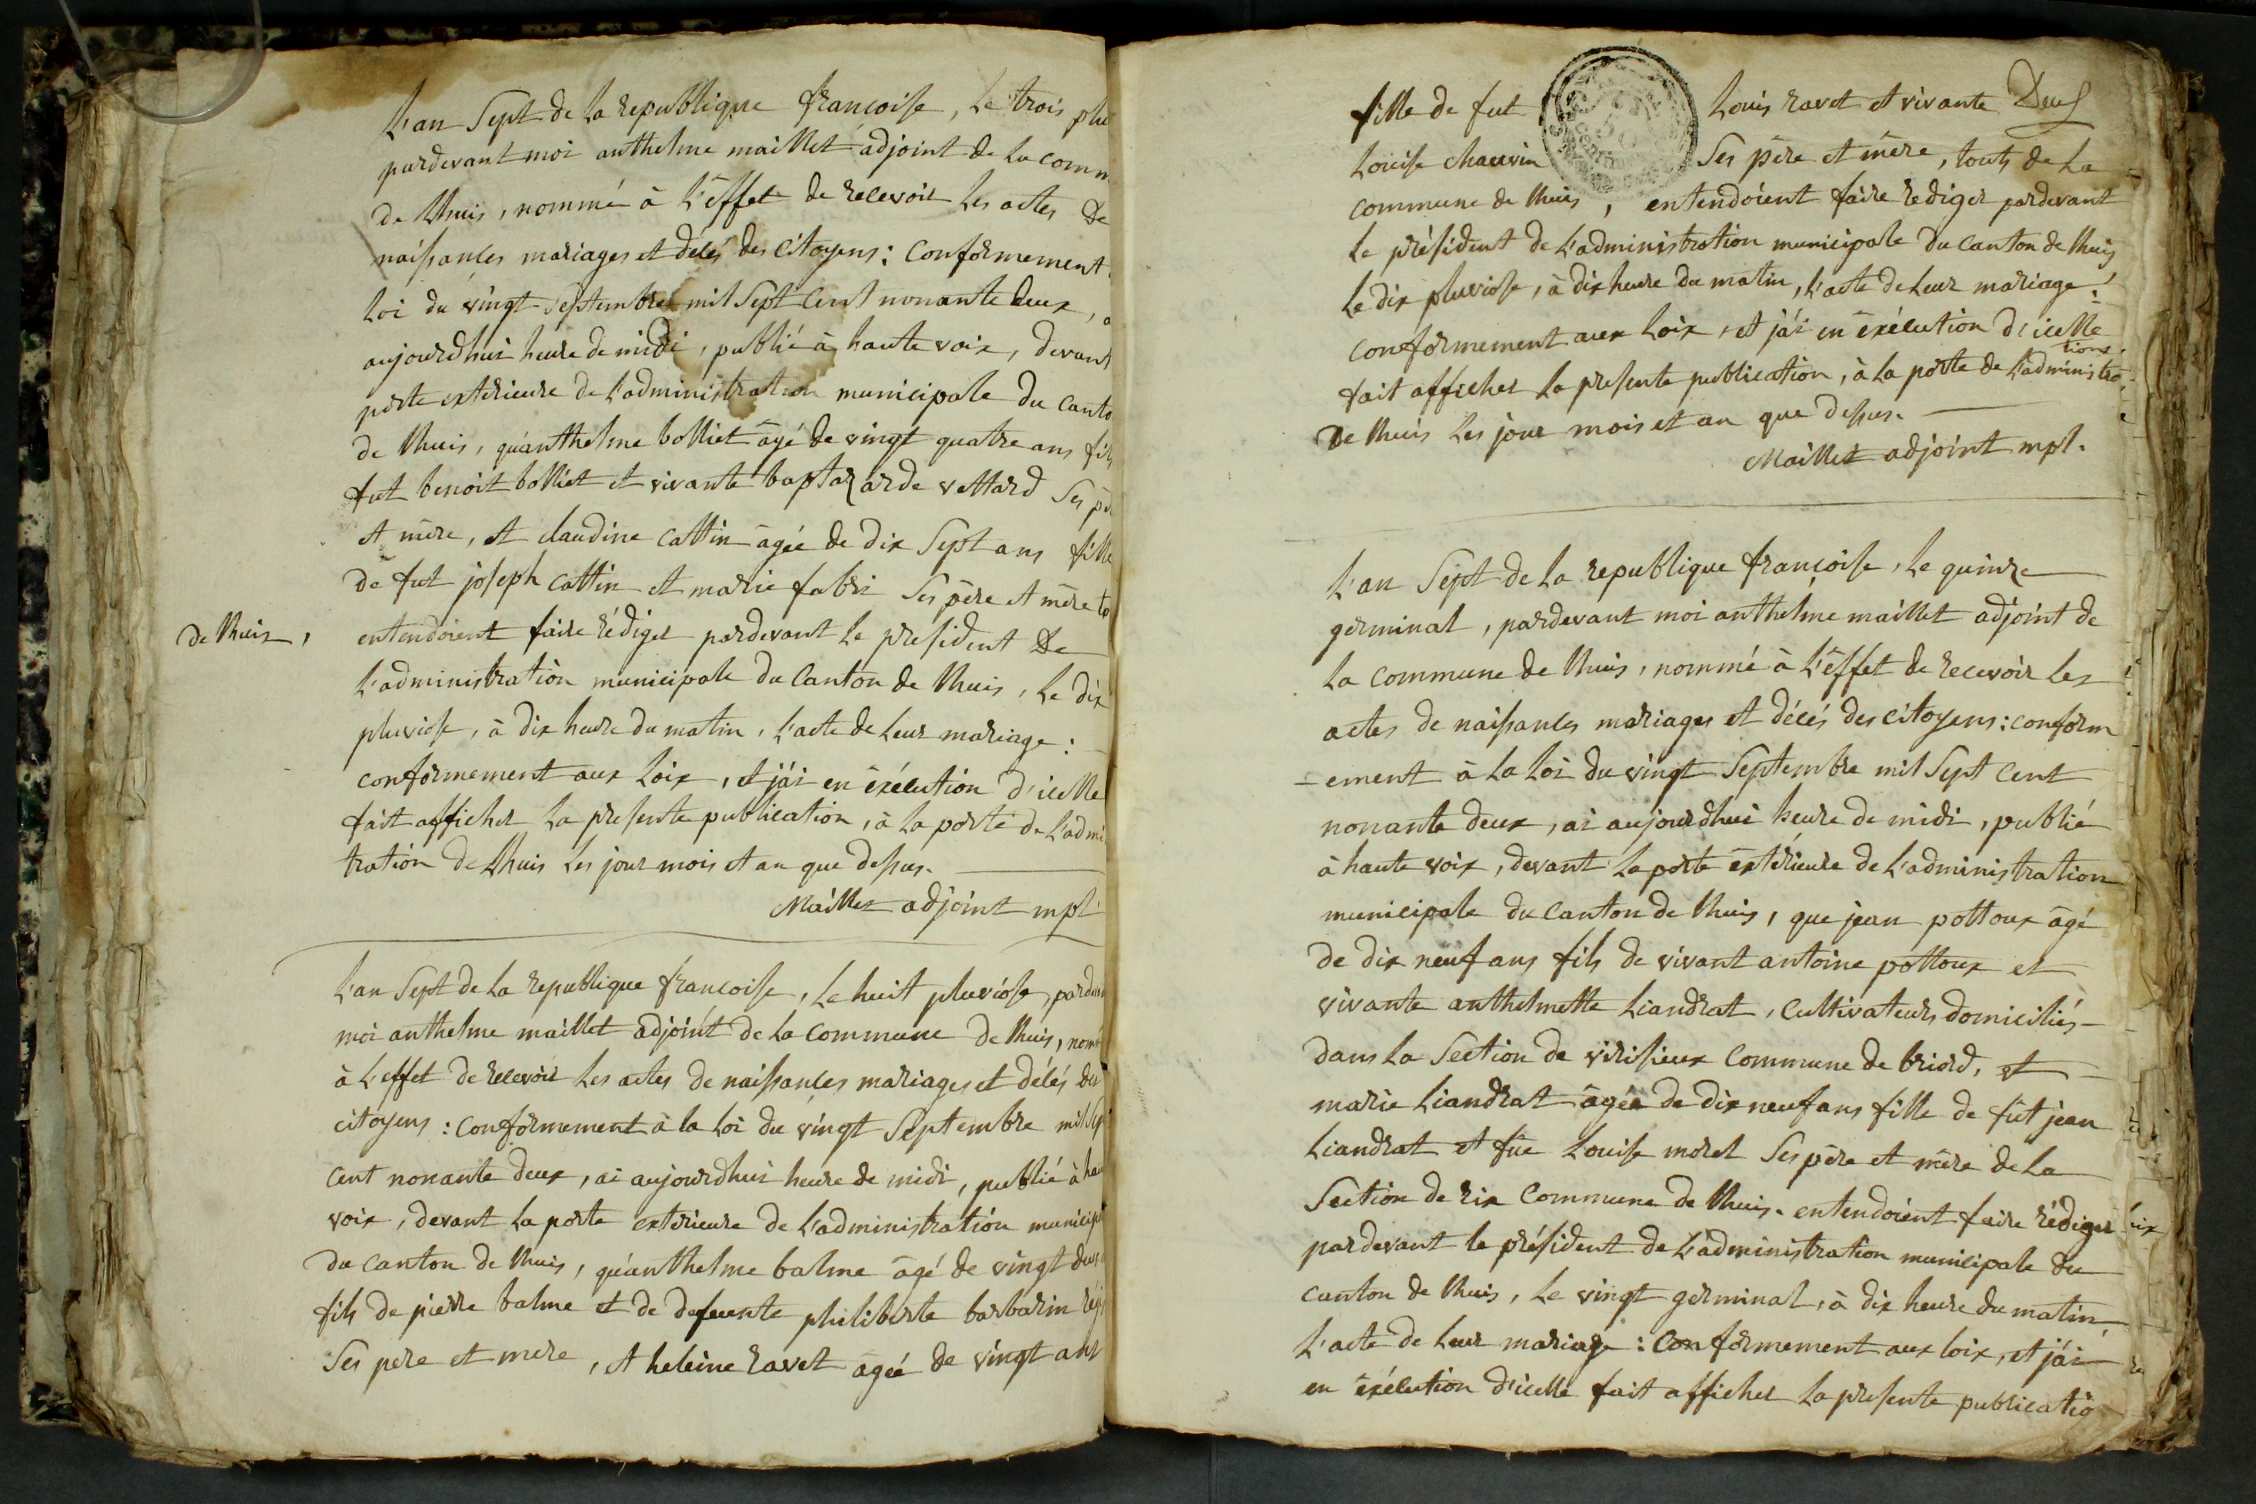 L'an Sept de la republique francoise, le trois plu
pardevant moi anthelme maillet adjoint de la comm
de Lhuis, nommé à L'éffet de recevoir les actes de
naissances mariages et décés des citoyens : Conformement
Loi du vingt-septembre mil Sept Cent nonante deux, a
aujourdhui heure de midi, publié à haute voix, devant
porte exterieure de L'administration municipale du canto
de Lhuis, qu'anthelme bolliet âgé de vingt quatre ans fils
fut benoit bolliet et vivante vettard Ses pè
et mère, et claudine cattin âgée de dix Sept ans fille
de fut joseph cattin et marie fabri Ses père et mère to
de Lhuis, entendoient faire rédiger pardevant le president de
L'administration municipale du Canton de Lhuis, le dix
pluviose, à dix heure du matin, l'acte de leur mariage :
conformement aux loix, et j'ai en éxécution d'icelle
fait afficher la presente publication, à la porte de L'admi
tration de Lhuis les jour mois et an que dessus.
Maillet adjoint mpl
L'an Sept de la republique francoise, le huit pluviose, pardevan
moi anthelme maillet adjoint de la commune de Lhuis, nom
à L'effet de recevoir les actes de naissances mariages et décés des
citoyens : conformement à la loi du vingt Septembre mil Sep
cent nonante deux, ai aujourdhui heure de midi, publié à hau
voix, devant la porte exterieure de L'administration municip
du canton de Lhuis, qu'anthelme balme âgé de vingt deux
fils de pierre balme et de defuente philiberte barbarin
Ses pere et mere, et heleine ravet âgée de vingt ans
fille de fut Louis ravet et vivante Deux
Louise chauvin Ses père et mère, touts de La
commune de Lhuis, entendoient faire rediger pardevant
le président de L'administration municipale du canton de Lhuis
le dix pluviose, à dix heure du matin, l'acte de leur mariage :
conformement aux loix, et j'ai en éxécution d'icelle
fait afficher la presente publication, à la porte de L'administra
tion
de Lhuis les jour mois et an que dessus.
Maillet adjoint mpl.
L'an Sept de la republique françoise, le quinze
germinal, pardevant moi anthelme maillet adjoint de
la commune de Lhuis, nommé à L'éffet de recevoir les
actes de naissances mariages et décés des citoyens : conform
-ement à la Loi du vingt Septembre mil Sept Cent
nonante deux, ai aujourdhui heure de midi, publié
à haute voix, devant la porte extérieure de L'administration
municipale du canton de Lhuis, que jean pottoux âgé
de dix neuf ans fils de vivant antoine pottoux et
vivante anthelmette Liandrat, cultivateurs domiciliés
dans la Section de virisieux Commune de briord, et
marie Liandrat âgée de dix neuf ans fille de fut jean
Liandrat et füe Louise morel Ses père et mère de la
Section de rix Commune de Lhuis. entendoient faire rédiger
pardevant le président de L'administration municipale du
canton de Lhuis, le vingt germinal, à dix heure du matin,
L'acte de leur mariage : Conformement aux loix, et j'ai
en éxécution d'icelle fait afficher la presente publicatio